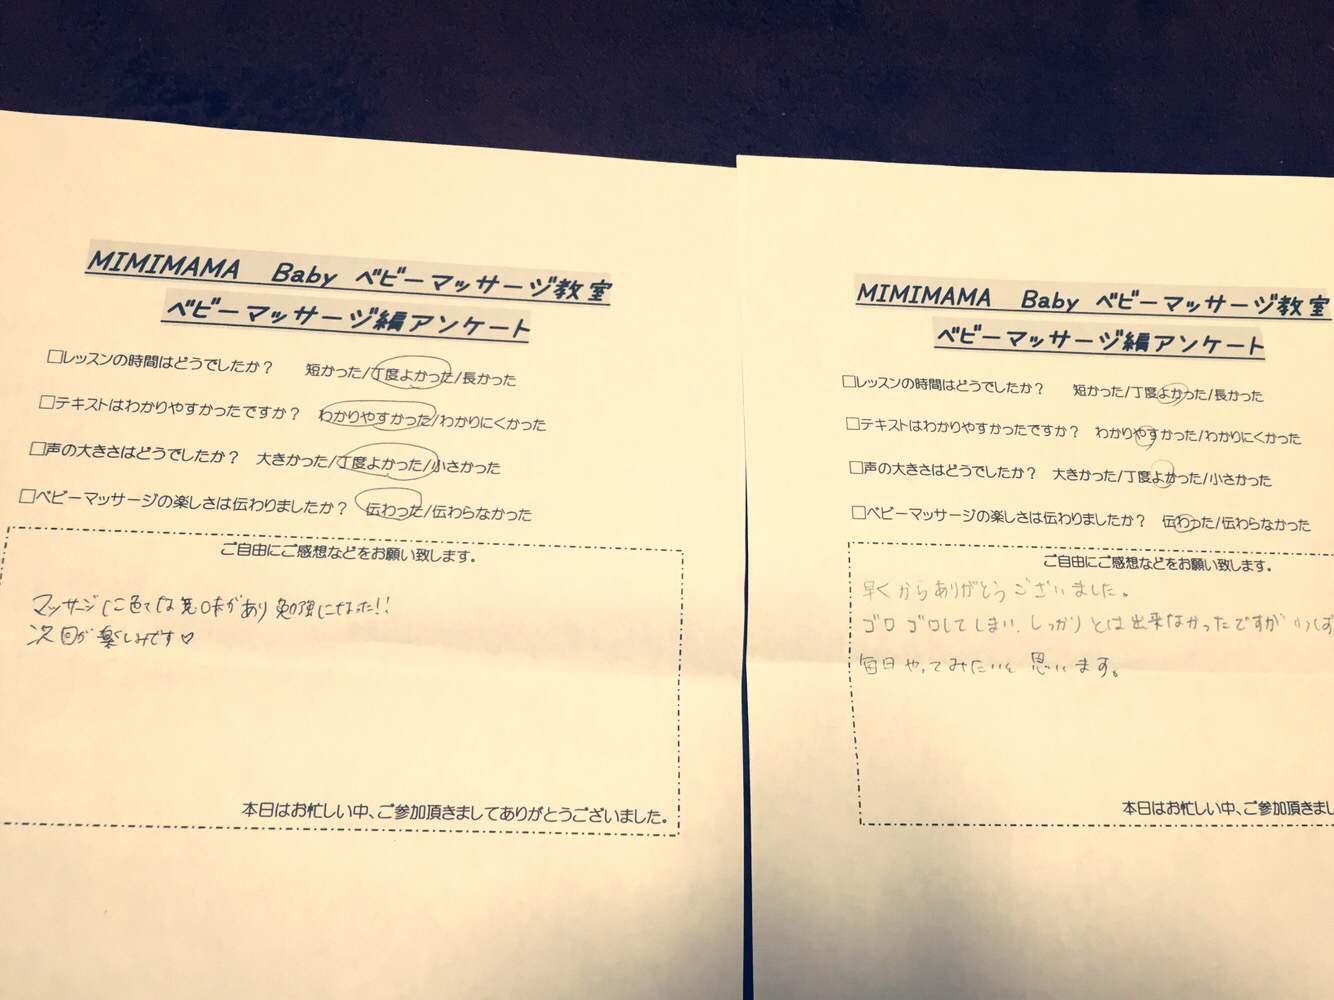 MIMIMAMA Baby ベビーマッサージ教室
ベビーマッサージ編アンケート
□レッスンの時間はどうでしたか? 短かった/丁度よかった/長かった
□テキストはわかりやすかったですか? わかりやすかった/わかりにくかった
□声の大きさはどうでしたか? 大きかった/丁度よかった/小さかった
□ベビーマッサージの楽しさは伝わりましたか? 伝わった/伝わらなかった
ご自由にご感想などをお願い致します。
マッサージに色々な意味があり勉強になった!!
次回が楽しみです♡
本日はお忙しい中、ご参加頂きましてありがとうございました。
MIMIMAMA Baby ベビーマッサージ教室
ベビーマッサージ編アンケート
□レッスンの時間はどうでしたか? 短かった/丁度よかった/長かった
□テキストはわかりやすかったですか? わかりやすかった/わかりにくかった
□声の大きさはどうでしたか? 大きかった/丁度よかった/小さかった
□ベビーマッサージの楽しさは伝わりましたか? 伝わった/伝わらなかった
ご自由にご感想などをお願い致します。
早くからありがとうございました。
ゴロゴロしてしまい、しっかりとは出来なかったですが
毎日やってみたいと思います。
本日はお忙しい中、ご参加頂きまし